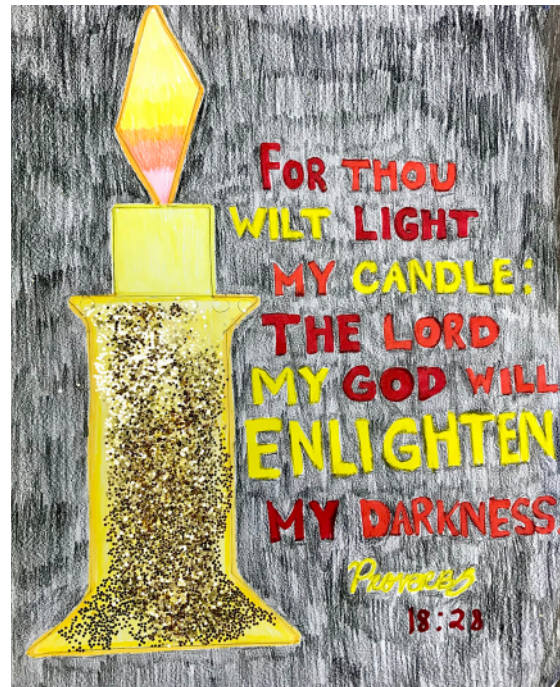 FOR THOU
WILT LIGHT
MY CANDLE:
THE LORD
MY GOD WILL
ENLIGHTEN
MY DARKNESS.
Proverbs
18:28